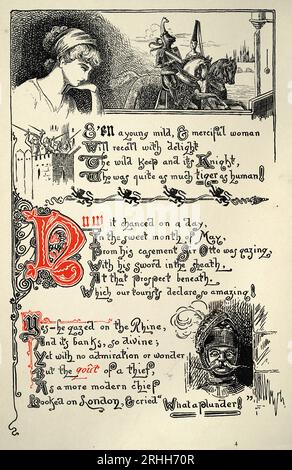 Even a young mild, & merciful woman
Will recall with delight
The wild keep and its Knight,
Who was quite as much tiger as human!
Now it chanced on a day,
In the sweet month of May,
From his casement Sir Otto was gazing,
With his sword in the sheath,
At that prospect beneath,
Which our tourists declare so amazing!
Yes—he gazed on the Rhine,
And its banks, so divine;
Yet with no admiration or wonder
But the goût of a thief
As a more modern chief
Looked on London, & cried "What a plunder!"
4
alamy
Image ID: 2RHH70R
www.alamy.com